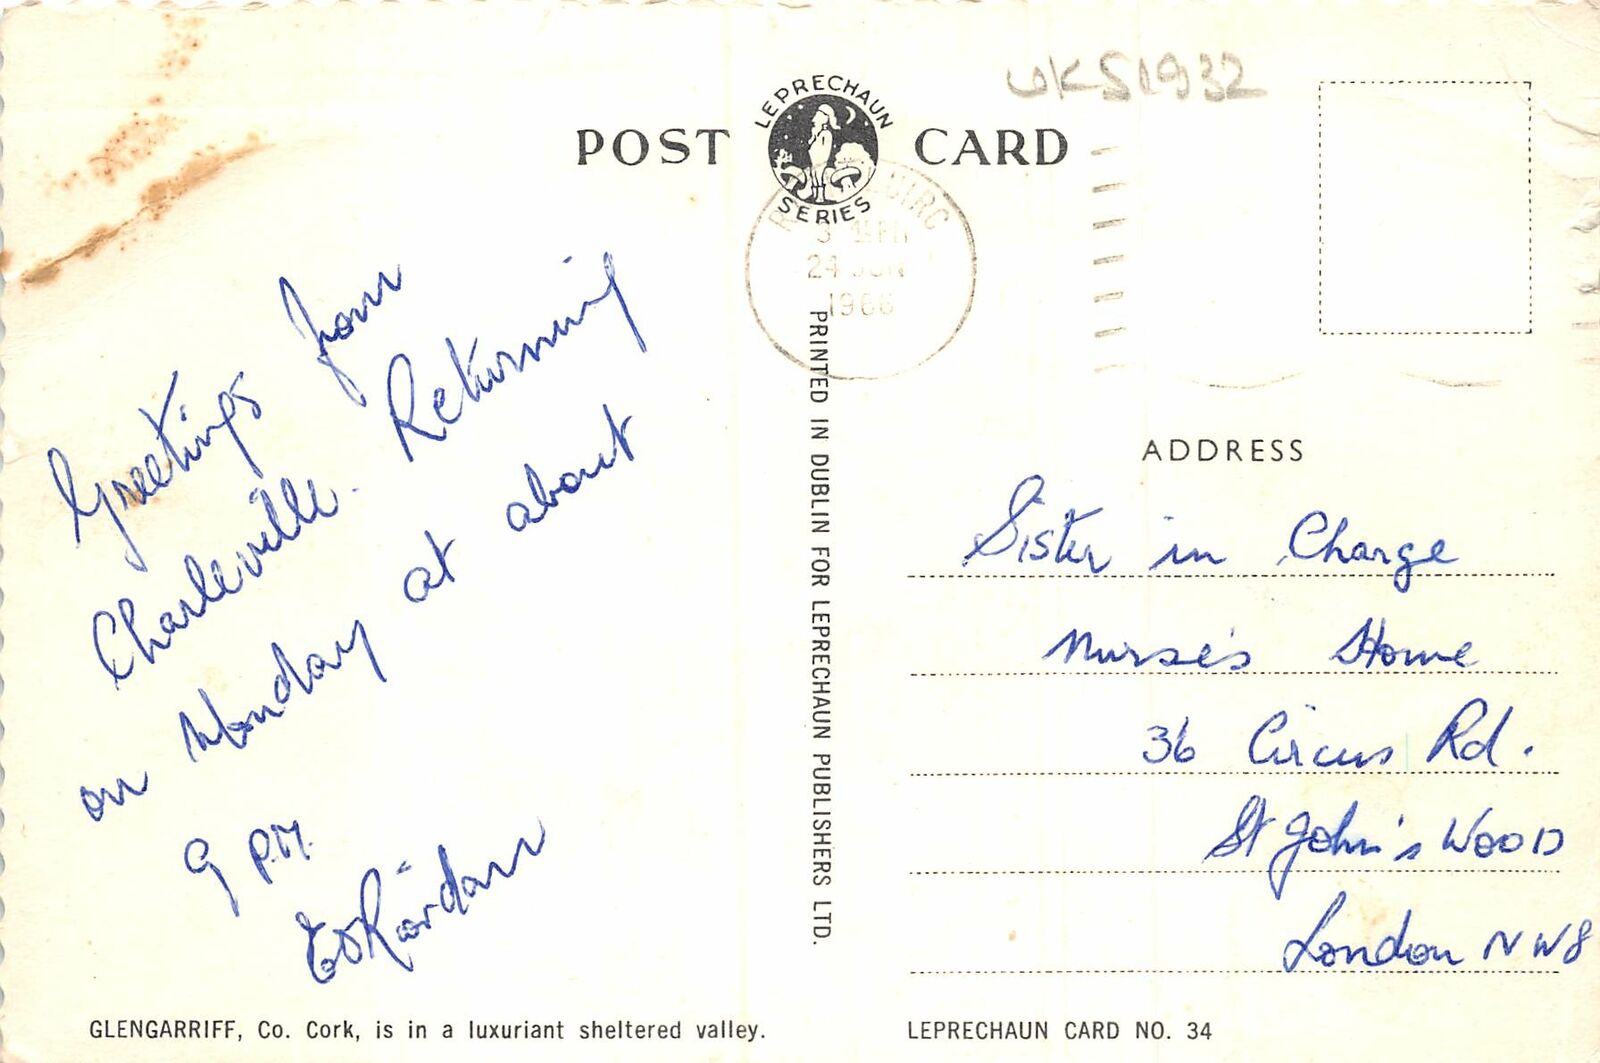 UKS1932
POST CARD
LEPRECHAUN
SERIES
24 JUN
1966
Greetings from
Charleville. Returning
on Monday at about
9 P.M.
E O'Riordan
PRINTED IN DUBLIN FOR LEPRECHAUN PUBLISHERS LTD.
ADDRESS
Sister in Charge
Nurse's Home
36 Circus Rd.
St John's WOOD
London NW8
GLENGARRIFF, Co. Cork, is in a luxuriant sheltered valley.
LEPRECHAUN CARD NO. 34